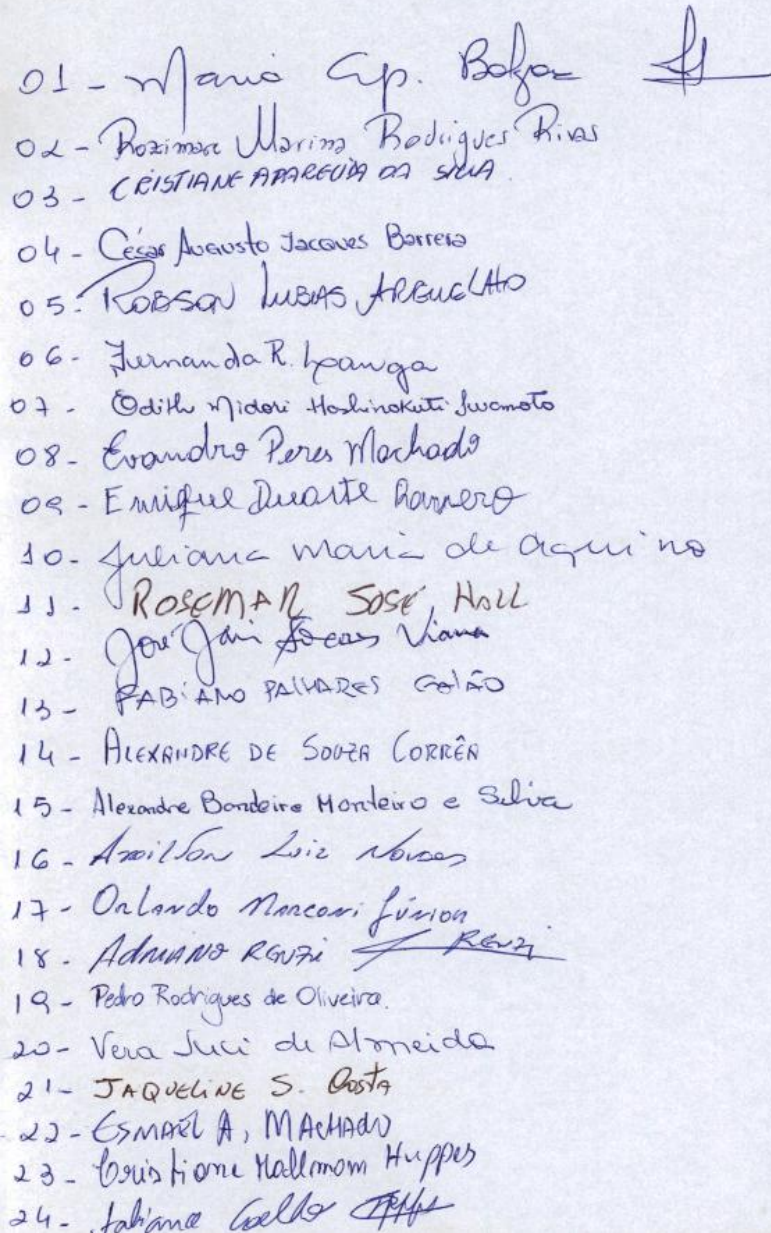 01 - Maria Ap. Balga
02 - Rozimare Marina Rodrigues Rivas
03 - CRISTIANE APARECIDA DA SILVA
04 - César Augusto Jacques Barrera
05 - ROBSON LUBAS ARGUELHO
06 - Fernanda R. Langa
07 - Edith Midori Hoshinokuti Iwamoto
08 - Evandro Peres Machado
09 - Enrique Duarte Romero
10 - Juliana Maria de Aquino
11 - ROSEMAR JOSÉ HALL
12 - José Jair Viana
13 - FABIANO PALHARES GALÃO
14 - ALEXANDRE DE SOUZA CORRÊA
15 - Alexandre Bandeira Monteiro e Silva
16 - Amilton Luiz Novaes
17 - Orlando Marconi Júnior
18 - ADRIANO RENZI RENZI
19 - Pedro Rodrigues de Oliveira.
20 - Vera Luci de Almeida
21 - JAQUELINE S. Costa
22 - ESMAEL A, MACHADO
23 - Cristiane Mallmann Huppes
24 - Fabiana Coelho